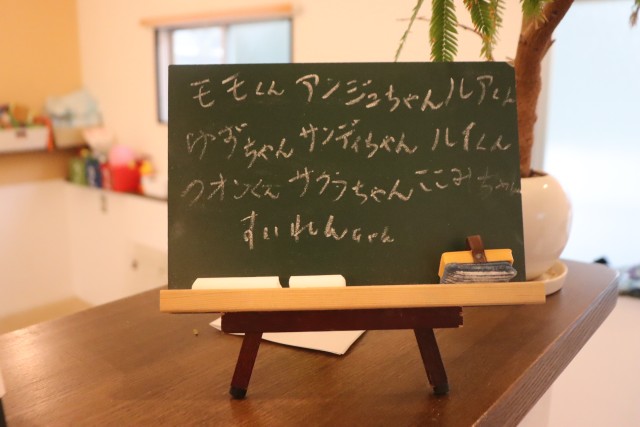 モモくん アンジュちゃん ルアくん
ゆずちゃん サンディちゃん ルイくん
クオンくん サクラちゃん ここみちゃん
すいれん